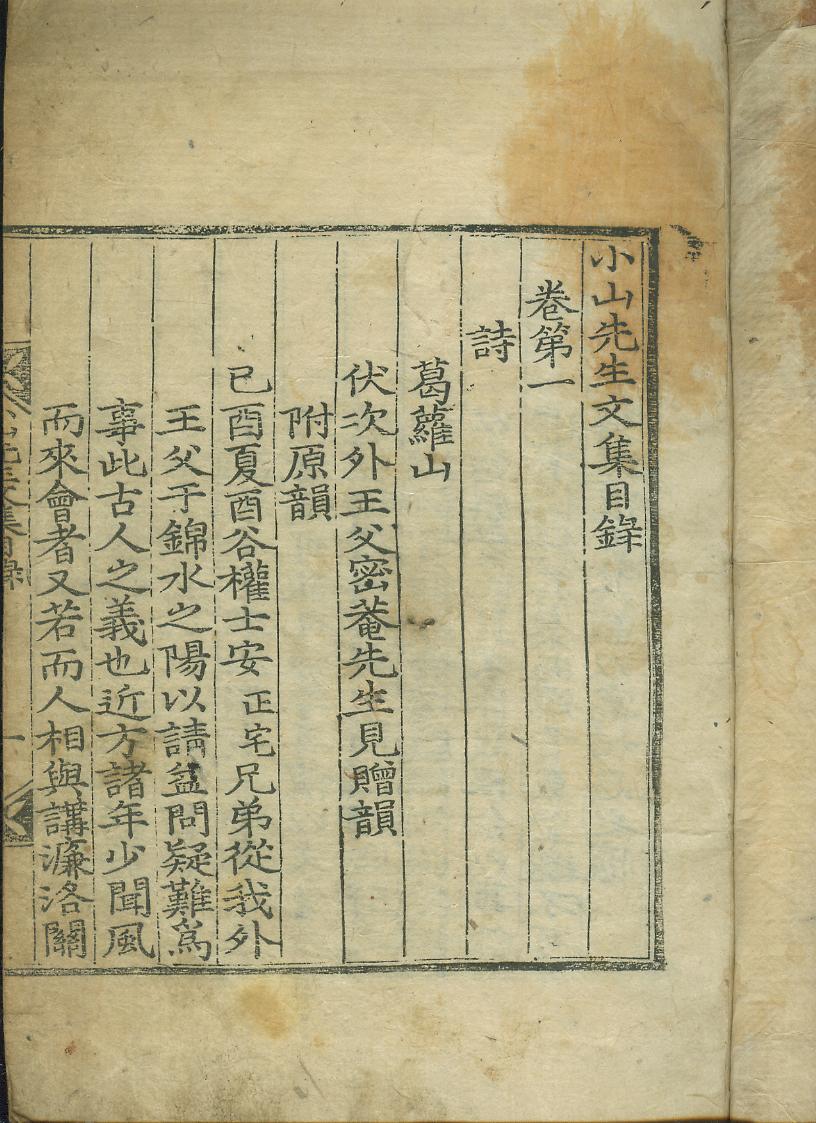 小山先生文集目錄
卷第一
詩
葛蘿山
伏次外王父密菴先生見贈韻
附原韻
已酉夏酉谷權士安正宅兄弟從我外
王父于錦水之陽以請益問疑難爲
事此古人之義也近方諸年少聞風
而來會者又若而人相與講濂洛關